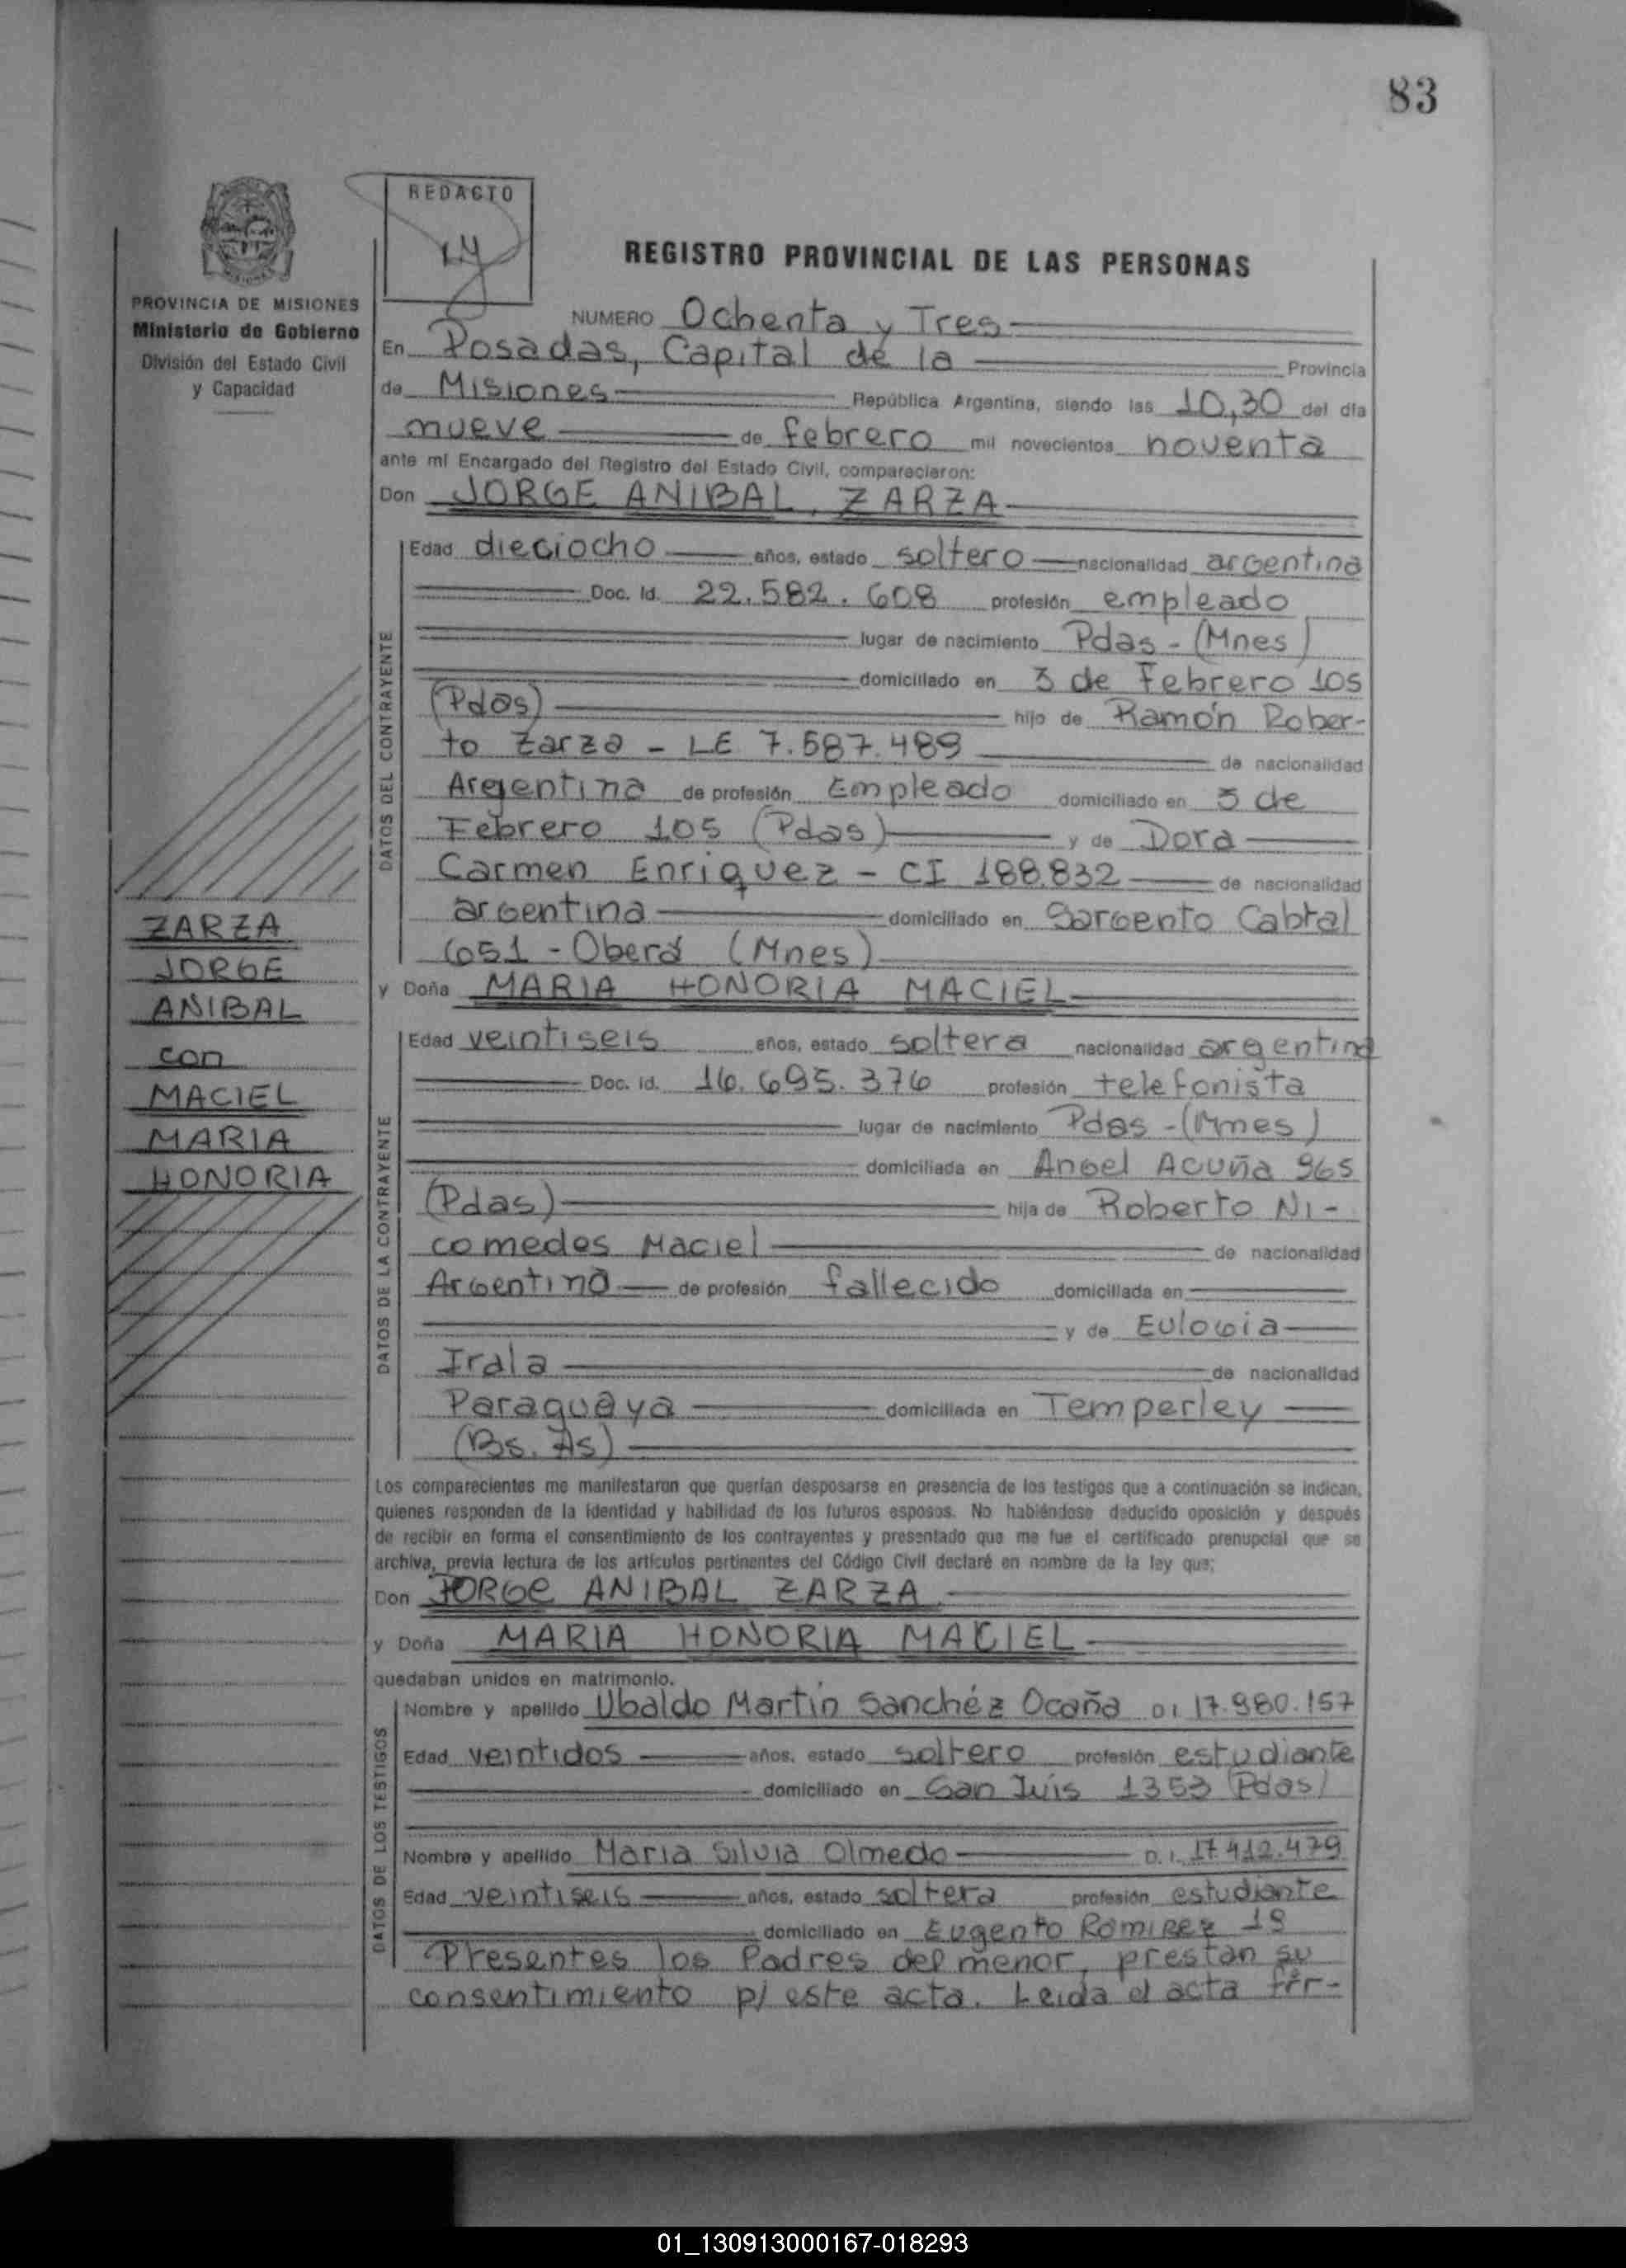 83
REDACTO
REGISTRO PROVINCIAL DE LAS PERSONAS
PROVINCIA DE MISIONES
Ministerio de Gobierno
División del Estado Civil
y Capacidad
NUMERO Ochenta y Tres
En Posadas, Capital de la Provincia
de Misiones República Argentina, siendo las 10,30 del día
nueve de febrero mil novecientos noventa
ante mí Encargado del Registro del Estado Civil, comparecieron:
Don JORGE ANIBAL, ZARZA
DATOS DEL CONTRAYENTE
Edad dieciocho años, estado soltero nacionalidad argentina
Doc. Id. 22.582.608 profesión empleado
lugar de nacimiento Pdas - (Mnes)
domiciliado en 3 de Febrero 105
(Pdas) hijo de Ramón Rober-
to Zarza - LE 7.587.489 de nacionalidad
Argentina de profesión Empleado domiciliado en 3 de
Febrero 105 (Pdas) y de Dora
Carmen Enriquez - CI 188.832 de nacionalidad
argentina domiciliado en Sargento Cabral
651 - Oberá (Mnes)
y Doña MARIA HONORIA MACIEL
ZARZA
JORGE
ANIBAL
con
MACIEL
MARIA
HONORIA
DATOS DE LA CONTRAYENTE
Edad veintiseis años, estado soltera nacionalidad argentina
Doc. Id. 16.695.376 profesión telefonista
lugar de nacimiento Pdas - (Mnes)
domiciliada en Angel Acuña 965
(Pdas) hija de Roberto Ni-
comedes Maciel de nacionalidad
Argentina de profesión fallecido domiciliada en
y de Eulogia
Irala de nacionalidad
Paraguaya domiciliada en Temperley
(Bs. As)
Los comparecientes me manifestaron que querían desposarse en presencia de los testigos que a continuación se indican,
quienes responden de la identidad y habilidad de los futuros esposos. No habiéndose deducido oposición y después
de recibir en forma el consentimiento de los contrayentes y presentado que me fue el certificado prenupcial que se
archiva, previa lectura de los artículos pertinentes del Código Civil declaré en nombre de la ley que;
Don JORGE ANIBAL ZARZA
y Doña MARIA HONORIA MACIEL
quedaban unidos en matrimonio.
DATOS DE LOS TESTIGOS
Nombre y apellido Ubaldo Martin Sanchéz Ocaña DI 17.980.157
Edad veintidos años, estado soltero profesión estudiante
domiciliado en San Luis 1353 (Pdas)
Nombre y apellido Maria Silvia Olmedo D.I. 17.412.479
Edad veintiseis años, estado soltera profesión estudiante
domiciliado en Eugento Romirez 19
Presentes los Padres del menor, prestan su
consentimiento p/ este acta. Leida el acta fir-
01_130913000167-018293